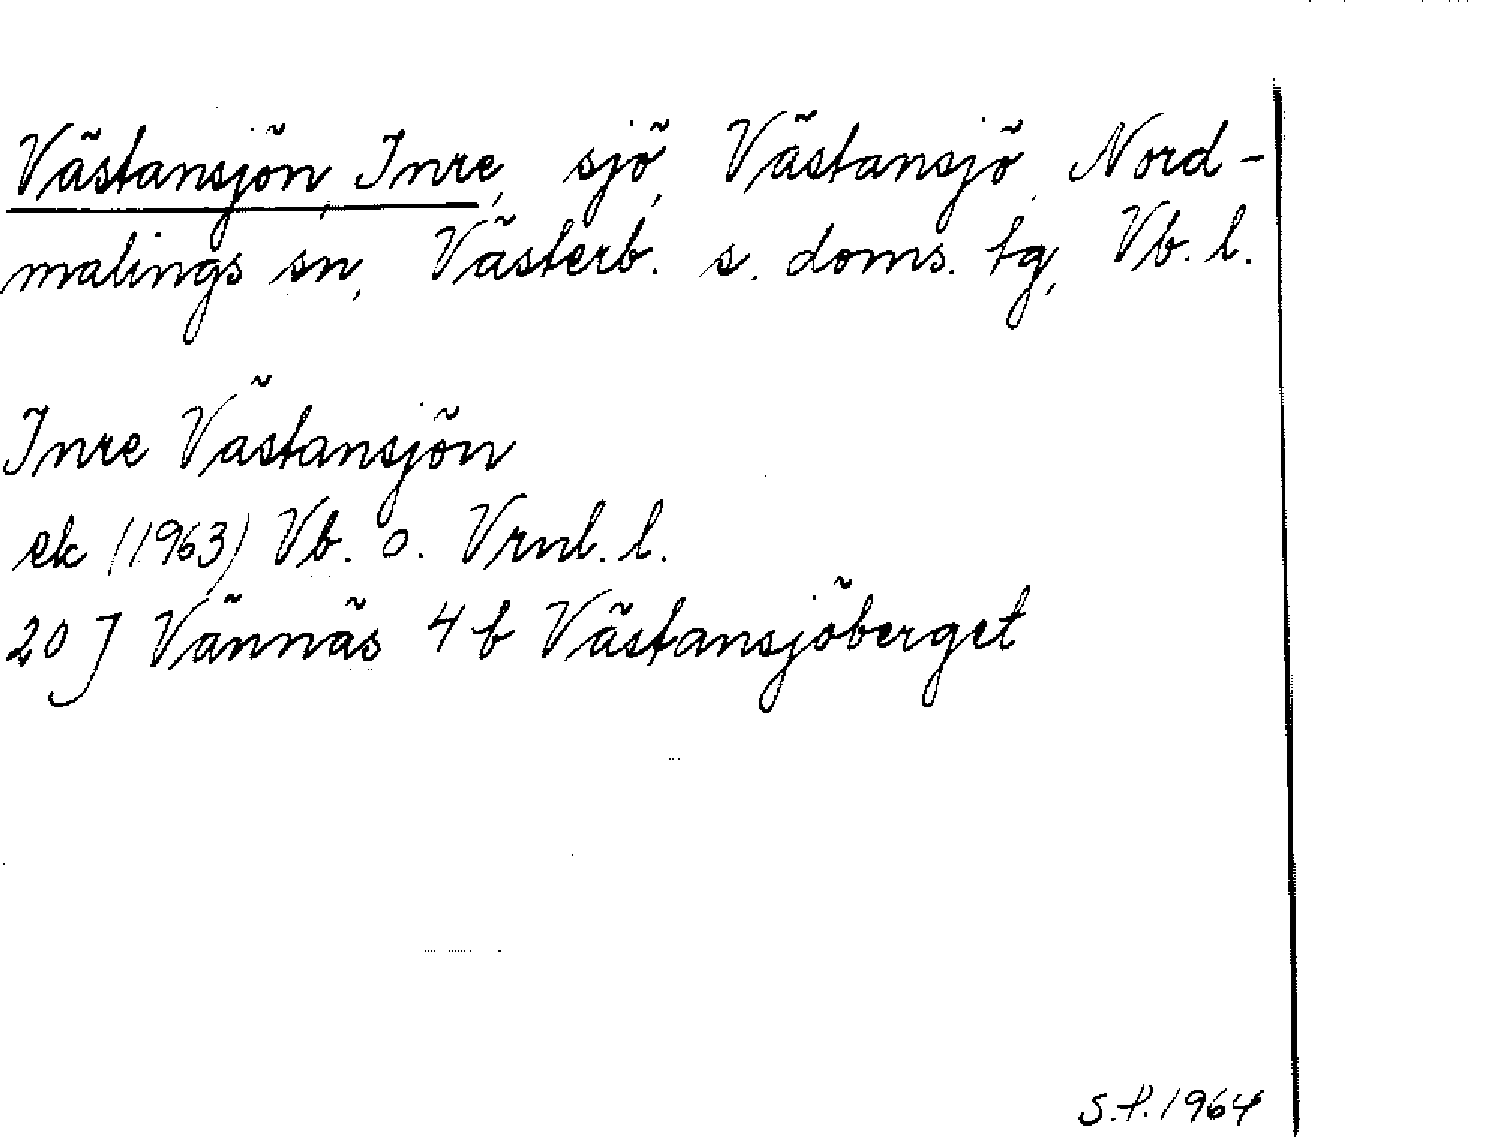 Västansjön, Inre, sjö, Västansjö, Nord-
malings sn, Västerb. s. doms. tg, Vb. l.
Inre Västansjön
ek (1963) Vb. o. Vrnl. l.
20 J Vännäs 4 b Västansjöberget
S.P. 1964